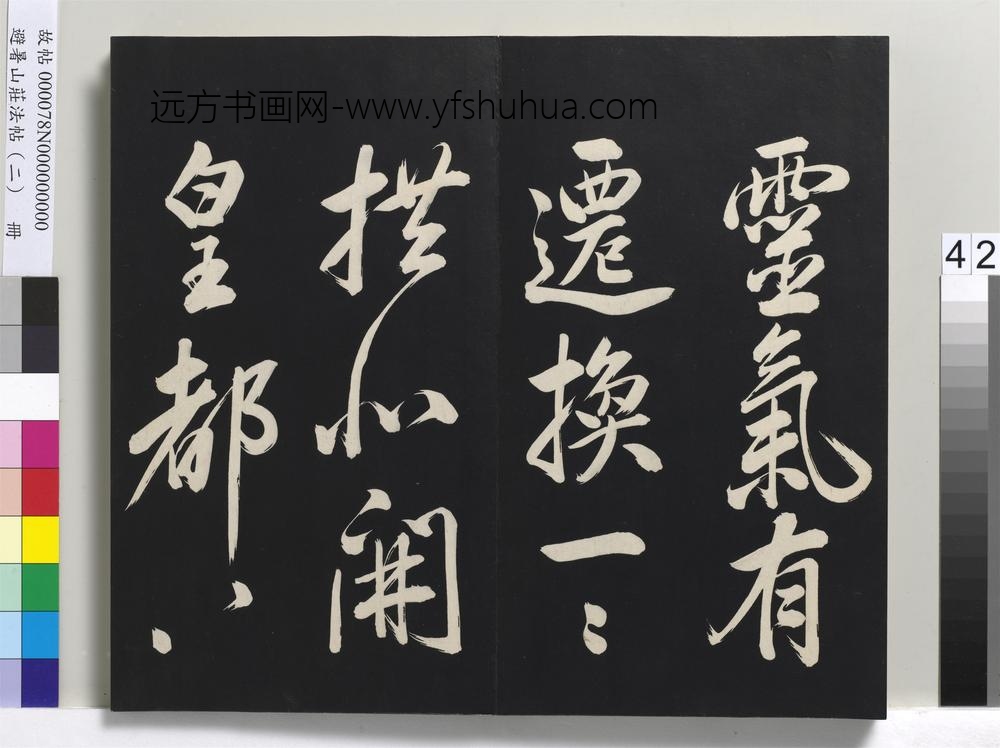 远方书画网-www.yfshuhua.com
靈氣有
遷換一〻
拱北開
皇都〻〻
故帖 000078N000000000
避暑山莊法帖（二） 冊
42